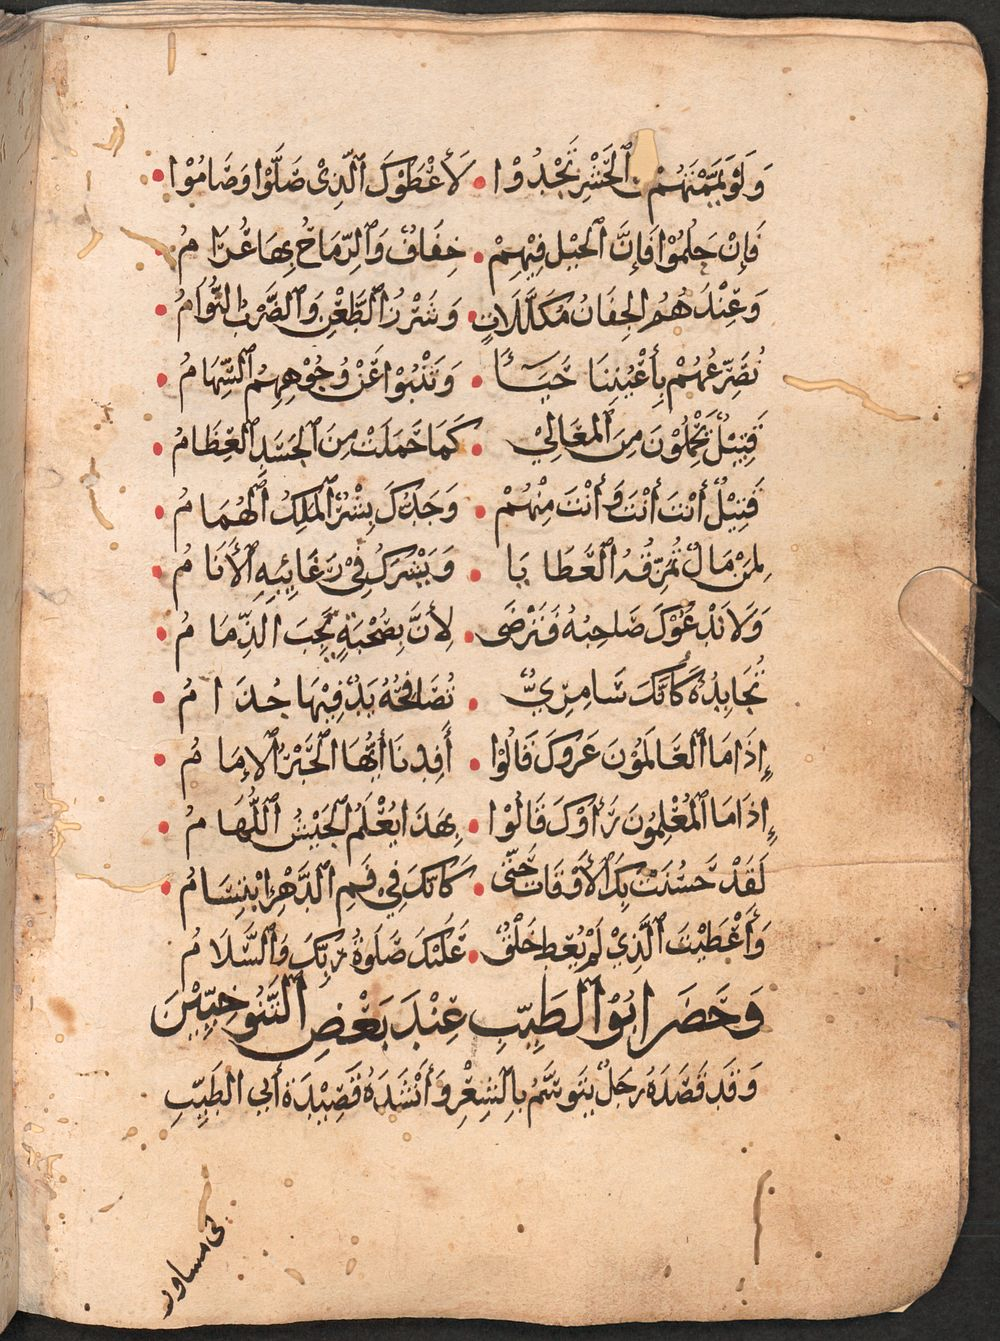 وَلَوْ يَمَّمْتَهُمْ فِي ٱلْحَشْرِ تَجْدُوْا • لَأَعْطَوْكَ ٱلَّذِيْ صَلَّوْا وَصَامُوْا •
فَإِنْ حَلُمُوْا فَإِنَّ ٱلْخَيْلَ فِيْهِمْ • خِفَافٌ وَٱلرِّمَاحُ بِهَا عُرَامُ •
وَعِنْدَهُمُ الجِفَانُ مُكَلَّلَاتٍ • وَشَزْرُ ٱلطَّعْنِ وَٱلضَّرْبُ التُّوَامُ •
نُصَرِّعُهُمْ بِأَعْيُنِنَا حَيَآءً • وَتَنْبُوْا عَنْ وُجُوْهِهِمُ ٱلسِّهَامُ •
قَبِيْلٌ يَحْمِلُوْنَ مِنَ ٱلْمَعَالِيْ • كَمَا حَمَلَتْ مِنَ ٱلْجَسَدِ ٱلْعِظَامُ •
قَبِيْلٌ أَنْتَ أَنْتَ وَأَنْتَ مِنْهُمْ • وَجَدُّكَ بِشْرٌ ٱلْمَلِكُ ٱلْهُمَامُ •
لِمَنْ مَالٌ تُمَزِّقُهُ ٱلْعَطَايَا • وَيَشْرَكُ فِيْ رَغَائِبِهِ ٱلْأَنَامُ •
وَلَا نَدْعُوْكَ صَاحِبَهُ فَتَرْضَى • لِأَنَّ بِصُحْبَةٍ تَجِبُ الذِّمَامُ •
تُحَايِدُهُ كَأَنَّكَ سَامِرِيٌّ • تُصَافِحُهُ يَدٌ فِيْهَا جُذَامُ •
إِذَا مَا ٱلْعَالَمُوْنَ عَرَوكَ قَالُوْا • أَفِدْنَا أَيُّهَا ٱلْحَبْرُ ٱلْإِمَامُ •
إِذَا مَا ٱلْمُعْلِمُوْنَ رَأَوْكَ قَالُوْا • بِهَذَا يُعْلَمُ ٱلْجَيْشُ ٱللُّهَامُ •
لَقَدْ حَسُنَتْ بِكَ ٱلْأَوْقَاتُ حَتَّى • كَأَنَّكَ فِيْ فَمِ ٱلدَّهْرِ ابْتِسَامُ •
وَأُعْطِيْتَ ٱلَّذِيْ لَمْ يُعْطَ خَلْقٌ • عَلَيْكَ صَلَوةُ رَبِّكَ وَٱلسَّلَامُ
وَحَضَرَ ابُوْ ٱلطَّيِّبِ عِنْدَ بَعْضِ ٱلتَّنُوخِيِّيْنَ
وَقَدْ قَصَدَهُ رَجُلٌ يَتَوَسَّمُ بِالشِّعْرِ وَأَنْشَدَهُ قَصِيْدَةَ أَبِي الطَّيِّبِ
في مساور